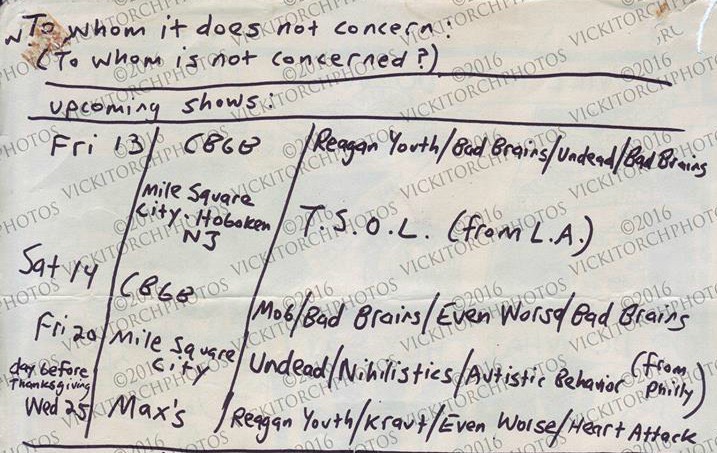 To whom it does not concern:
(To whom is not concerned?)
upcoming shows:
Fri 13 / CBGB / Reagan Youth/Bad Brains/Undead/Bad Brains
Mile Square City-Hoboken NJ / T.S.O.L. (from L.A.)
Sat 14 / CBGB / Mob/Bad Brains/Even Worse/Bad Brains
Fri 20 / Mile Square City / Undead/Nihilistics/Autistic Behavior (from Philly)
day before Thanksgiving Wed 25 / Max's / Reagan Youth/Kraut/Even Worse/Heart Attack
©2016 VICKITORCHPHOTOS